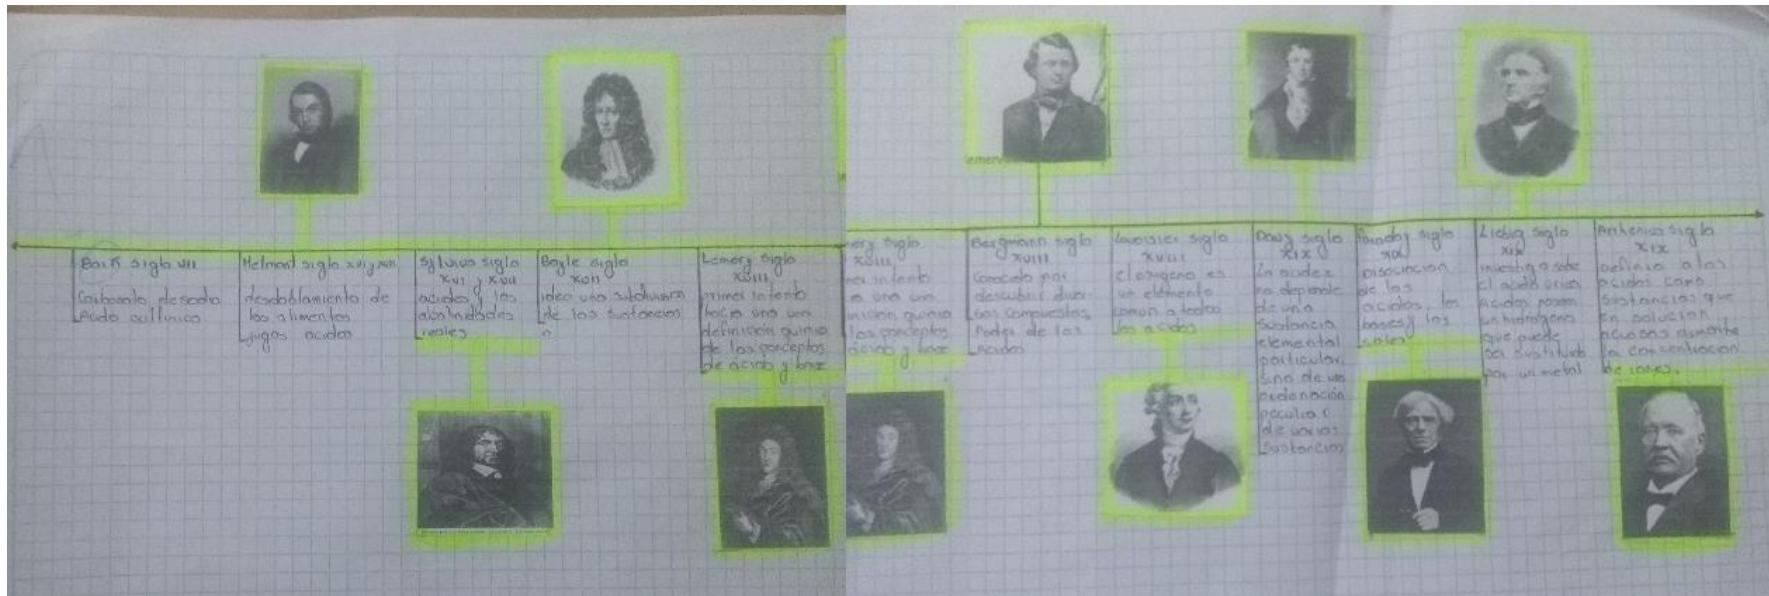 siglo VII
Carbonato de sodio
Acido sulfurico
Helmont siglo XVI y XVII
desdoblamiento de
los alimentos
jugos acidos
Sylvius siglo
XVI y XVII
acidos y las
reales
Boyle siglo
XVII
ideo una subdivision
de las sustancias
Lemery siglo
XVIII
primer intento
hacia una
definicion
de los conceptos
de acido y base
siglo
XVIII
intento
una
los conceptos
acido y base
Bergmann siglo
XVIII
Conocido por
descubrir diver
sos compuestos,
Poder de los
Acidos
Lavoisier siglo
XVIII
el oxigeno es
un elemento
comun a todos
los acidos
Davy siglo
XIX
La acidez
no depende
de una
sustancia
elemental
particular
sino de una
ordenación
peculiar
de varias
sustancias
siglo
XIX
Disociacion
de los
acidos, las
bases y las
sales
Liebig siglo
XIX
investigo sobre
el acido urico
Acidos poseen
un hidrogeno
que puede
ser sustituido
por un metal
Arrhenius siglo
XIX
definio a los
acidos como
sustancias que
en solucion
acuosas aumenta
la concentracion
de iones.